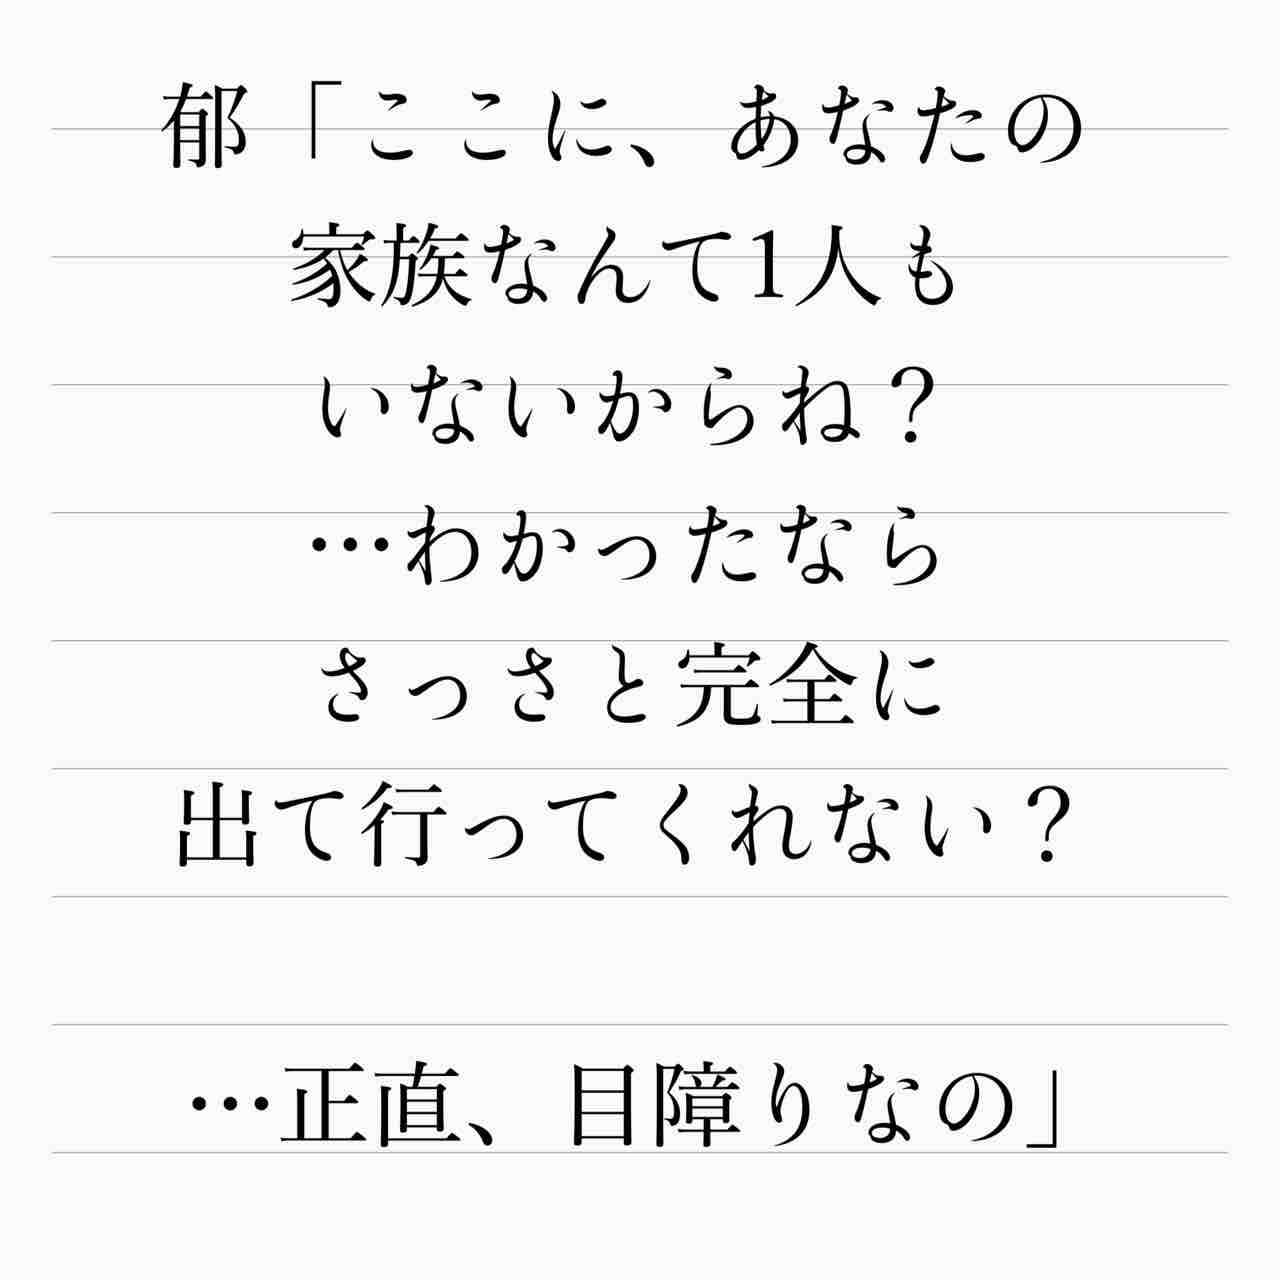 郁「ここに、あなたの
家族なんて1人も
いないからね？
…わかったなら
さっさと完全に
出て行ってくれない？
…正直、目障りなの」